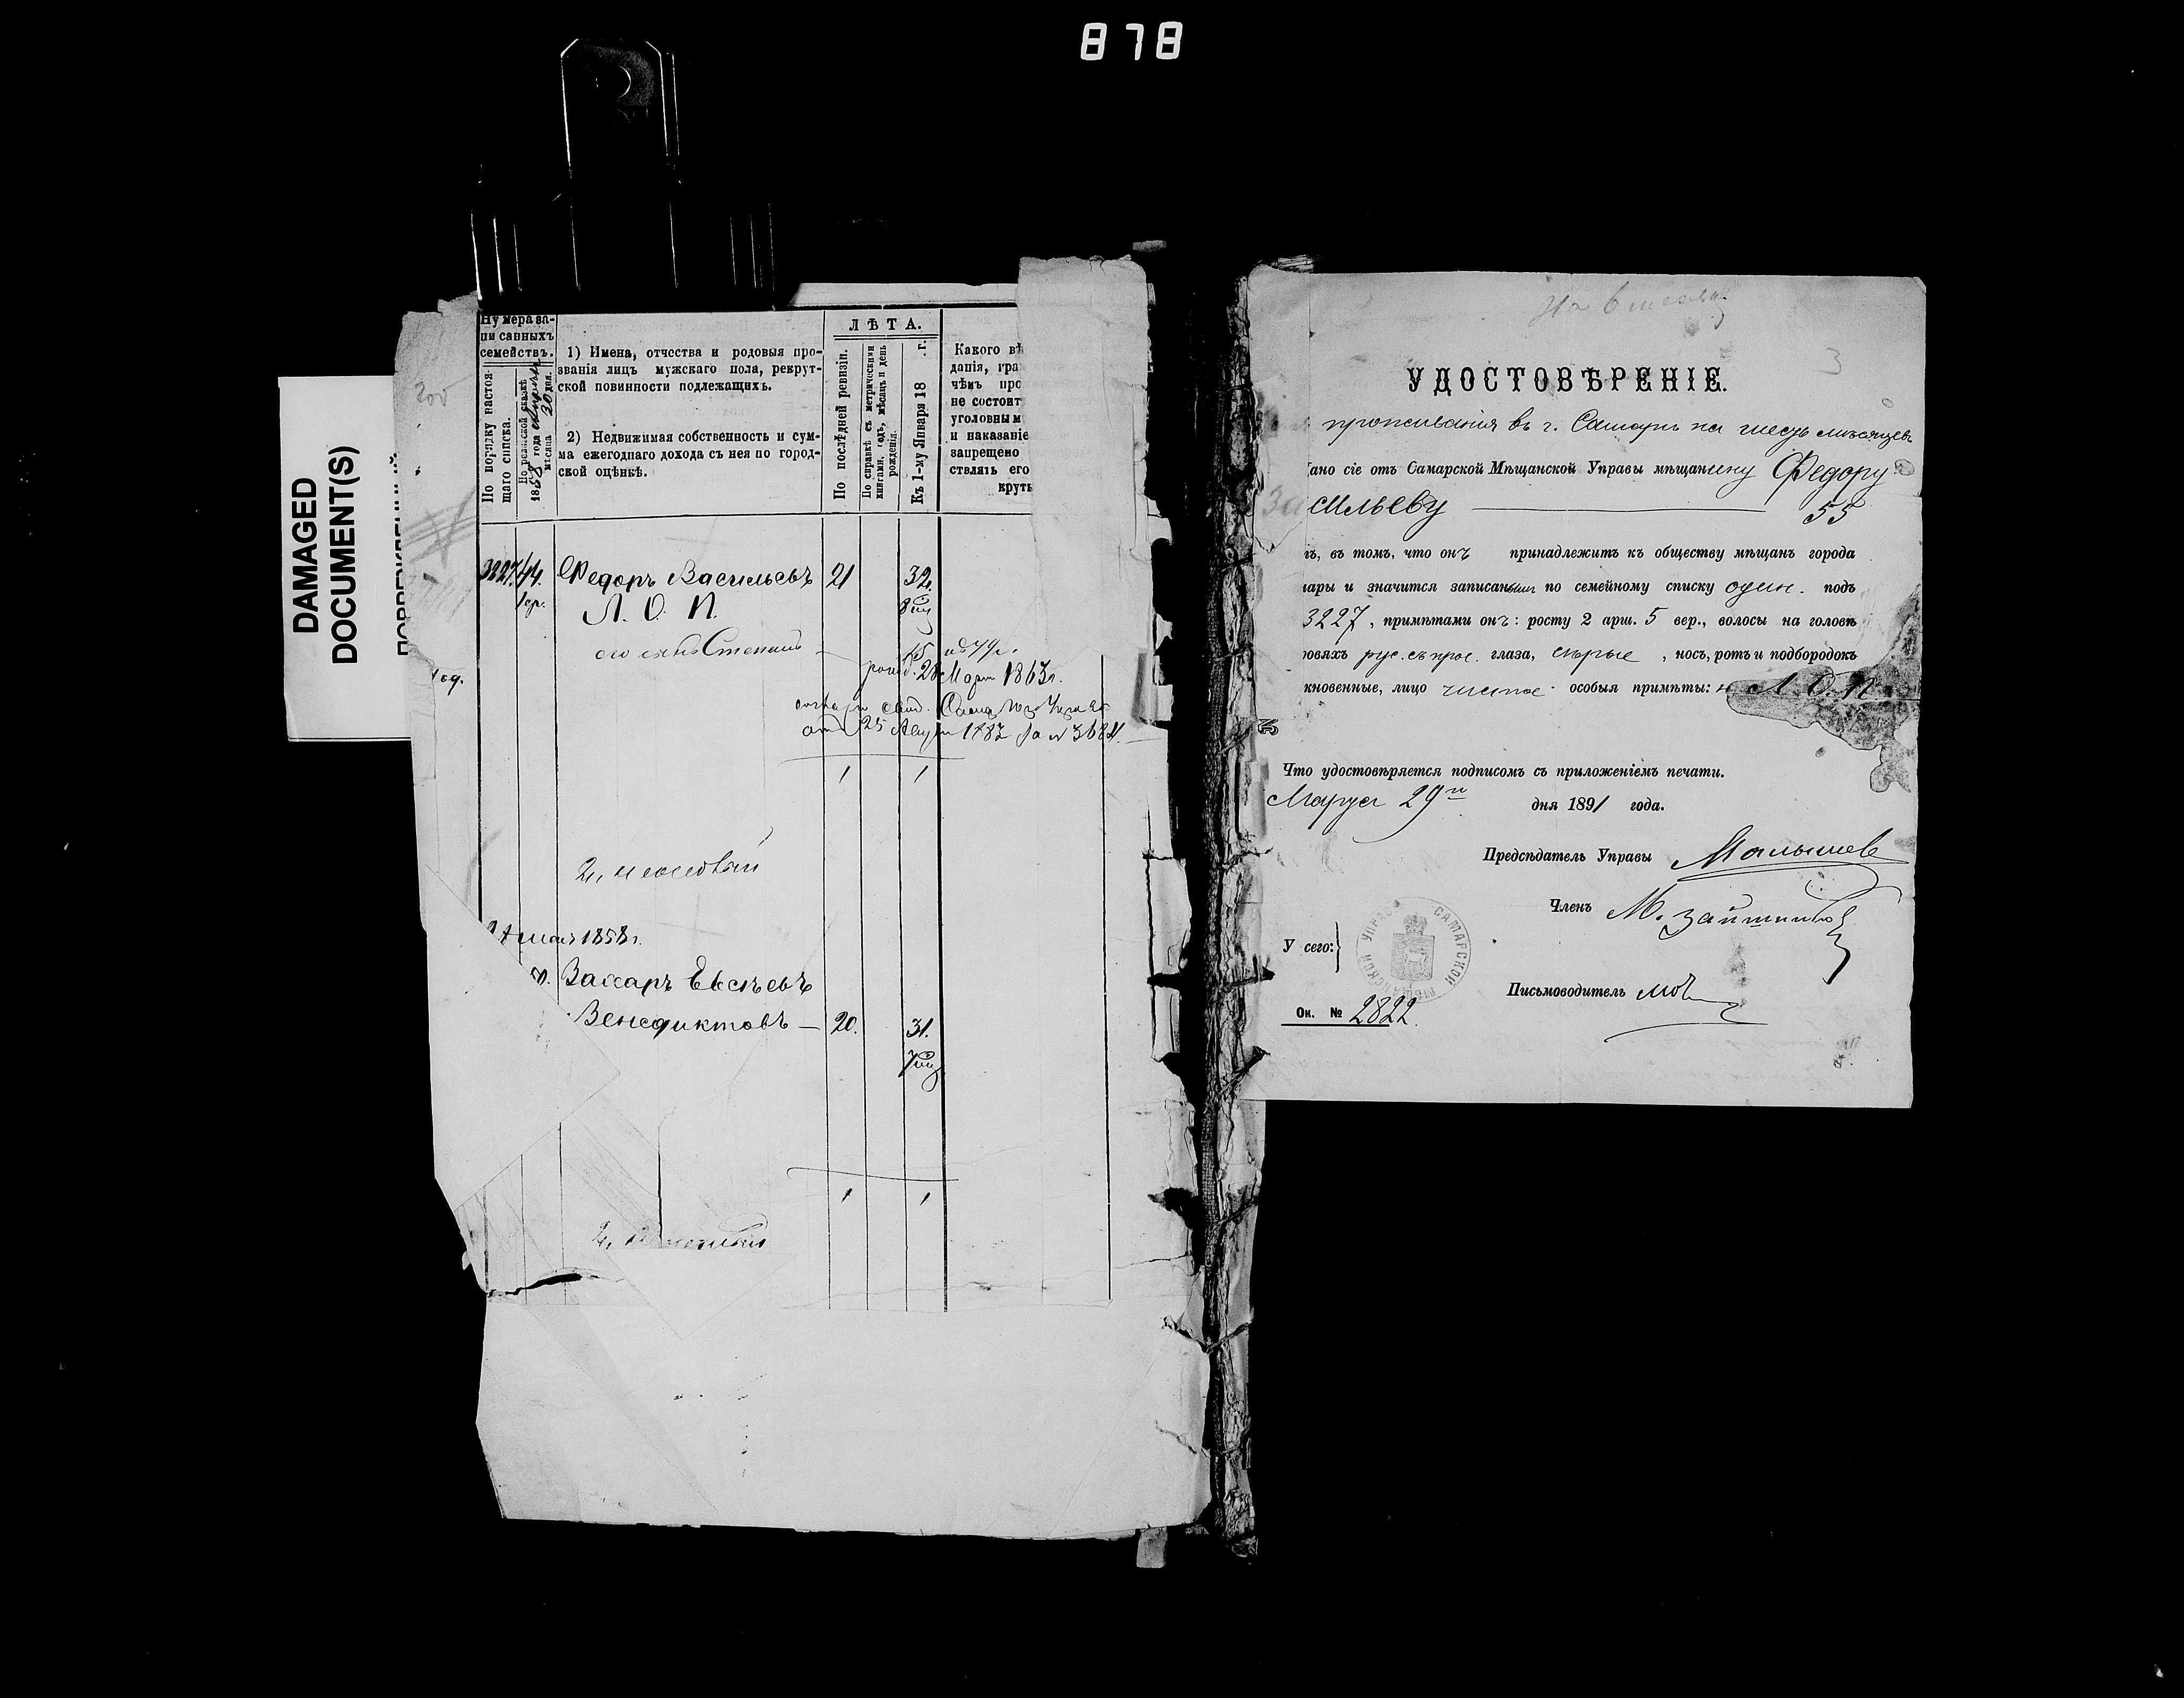 878
DAMAGED
DOCUMENT(S)
Нумера за-
писанныхъ
семействъ.
По порядку настоя-
щаго списка.
По ревизской сказкѣ
1858 года
мѣсяца 30 дня.
1) Имена, отчества и родовыя про-
званія лицъ мужскаго пола, рекрут-
ской повинности подлежащихъ.
2) Недвижимая собственность и сум-
ма ежегоднаго дохода съ нея по город-
ской оцѣнкѣ.
ЛѢТА.
По послѣдней ревизіи.
По справкѣ съ метрическими
книгами, годъ, мѣсяцъ и день
рожденія.
Къ 1-му Января 18 г.
Какого вѣ
данія, гра
чѣмъ про
не состоит
уголовным
и наказаніе
запрещено
ствлять его
круть
3227. 44. Федоръ Васильевъ 21 32.
1 ср. Л. О. П. 8 м
его сынъ Степанъ — 15
рожд. 28 Март 1863г.
от 25 Авгу 1883 за № 3684.
1 1
1858г.
Вассаръ Евсѣевъ
Венедиктовъ — 20. 31.
7 м
1 1
На 6 месяц
3
УДОСТОВѢРЕНІЕ.
проживанія въ г. Самарѣ на шесть мѣсяцевъ
ано сіе отъ Самарской Мѣщанской Управы мѣщанину Федору
сильеву — 55
ъ, въ томъ, что онъ принадлежитъ къ обществу мѣщанъ города
ары и значится записаннымъ по семейному списку один. подъ
3227, примѣтами онъ: росту 2 арш. 5 вер., волосы на головѣ
ровяхъ рус. съ прос. глаза, сѣрые, носъ, ротъ и подбородокъ
кновенные, лицо чистое особыя примѣты: н Л. О. П.
Что удостовѣряется подписомъ съ приложеніемъ печати.
Марта 29го дня 1891 года.
Предсѣдатель Управы Малышев
Членъ М.
У сего:
САМАРСКОЙ МѢЩАНСКОЙ УПРАВЫ
Письмоводитель
Ок. № 2822.